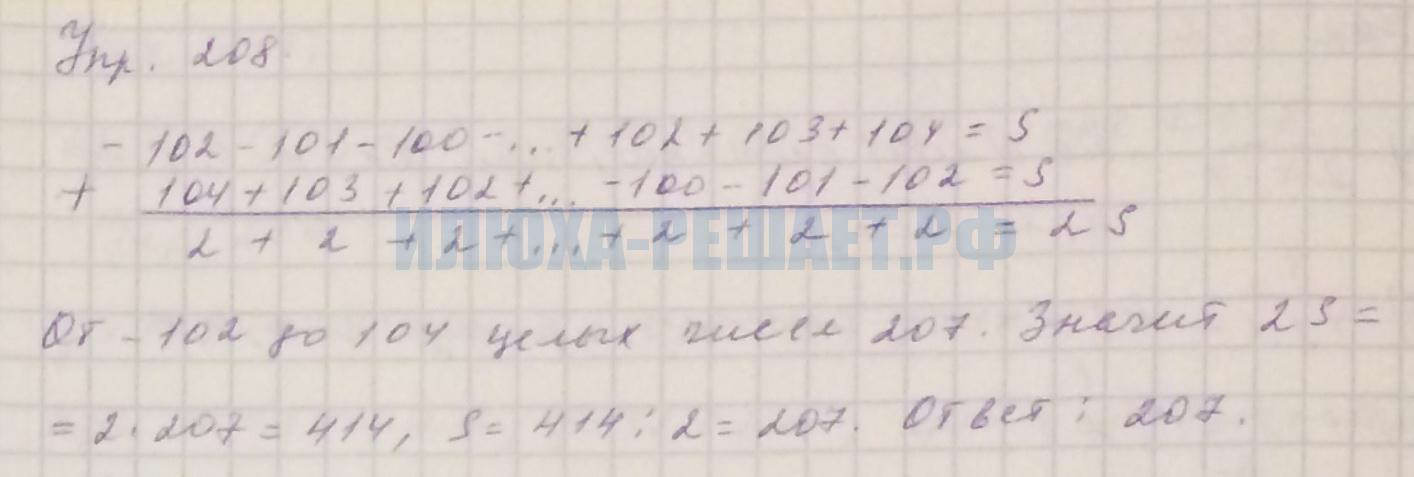 Упр. 208.
- 102 - 101 - 100 - ... + 102 + 103 + 104 = S
+ 104 + 103 + 102 + ... - 100 - 101 - 102 = S
2 + 2 + 2 + ... + 2 + 2 + 2 = 2 S
ИЛЮХА-РЕШАЕТ.РФ
От - 102 до 104 целых чисел 207. Значит 2 S =
= 2 · 207 = 414, S = 414 : 2 = 207. Ответ : 207.